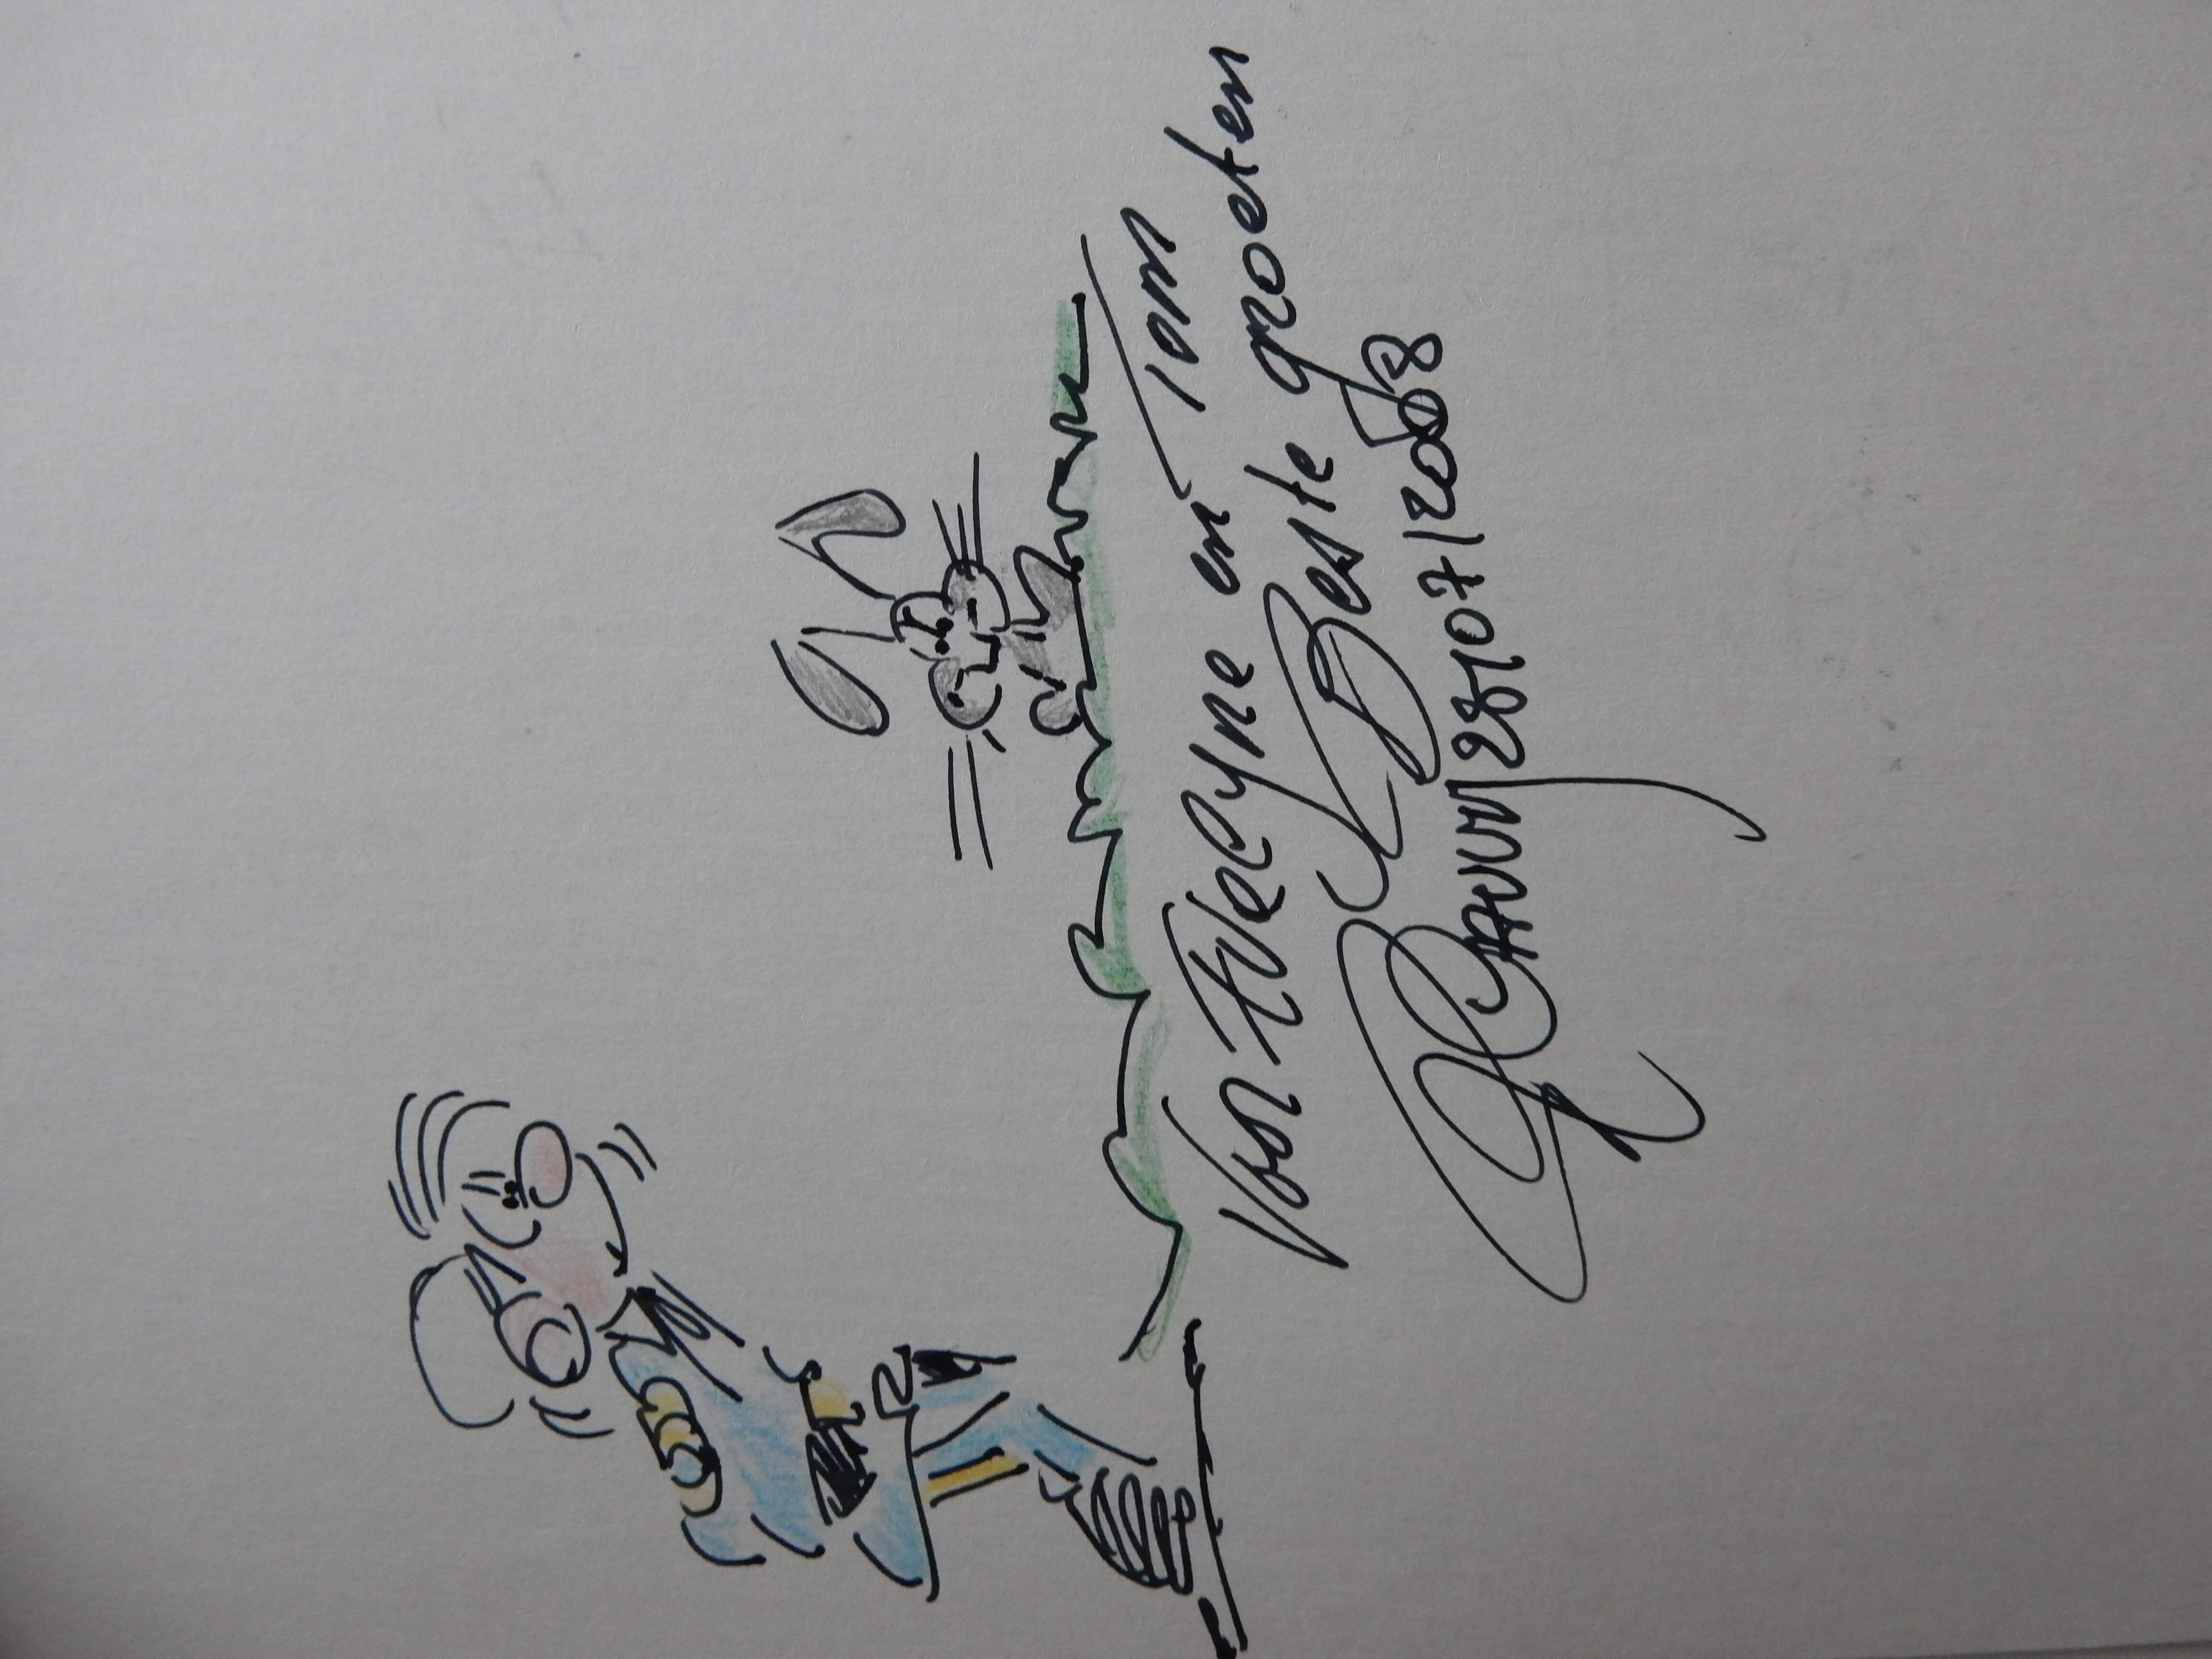 Voor Evelyne en Tom
Beste groeten
28/07/2008